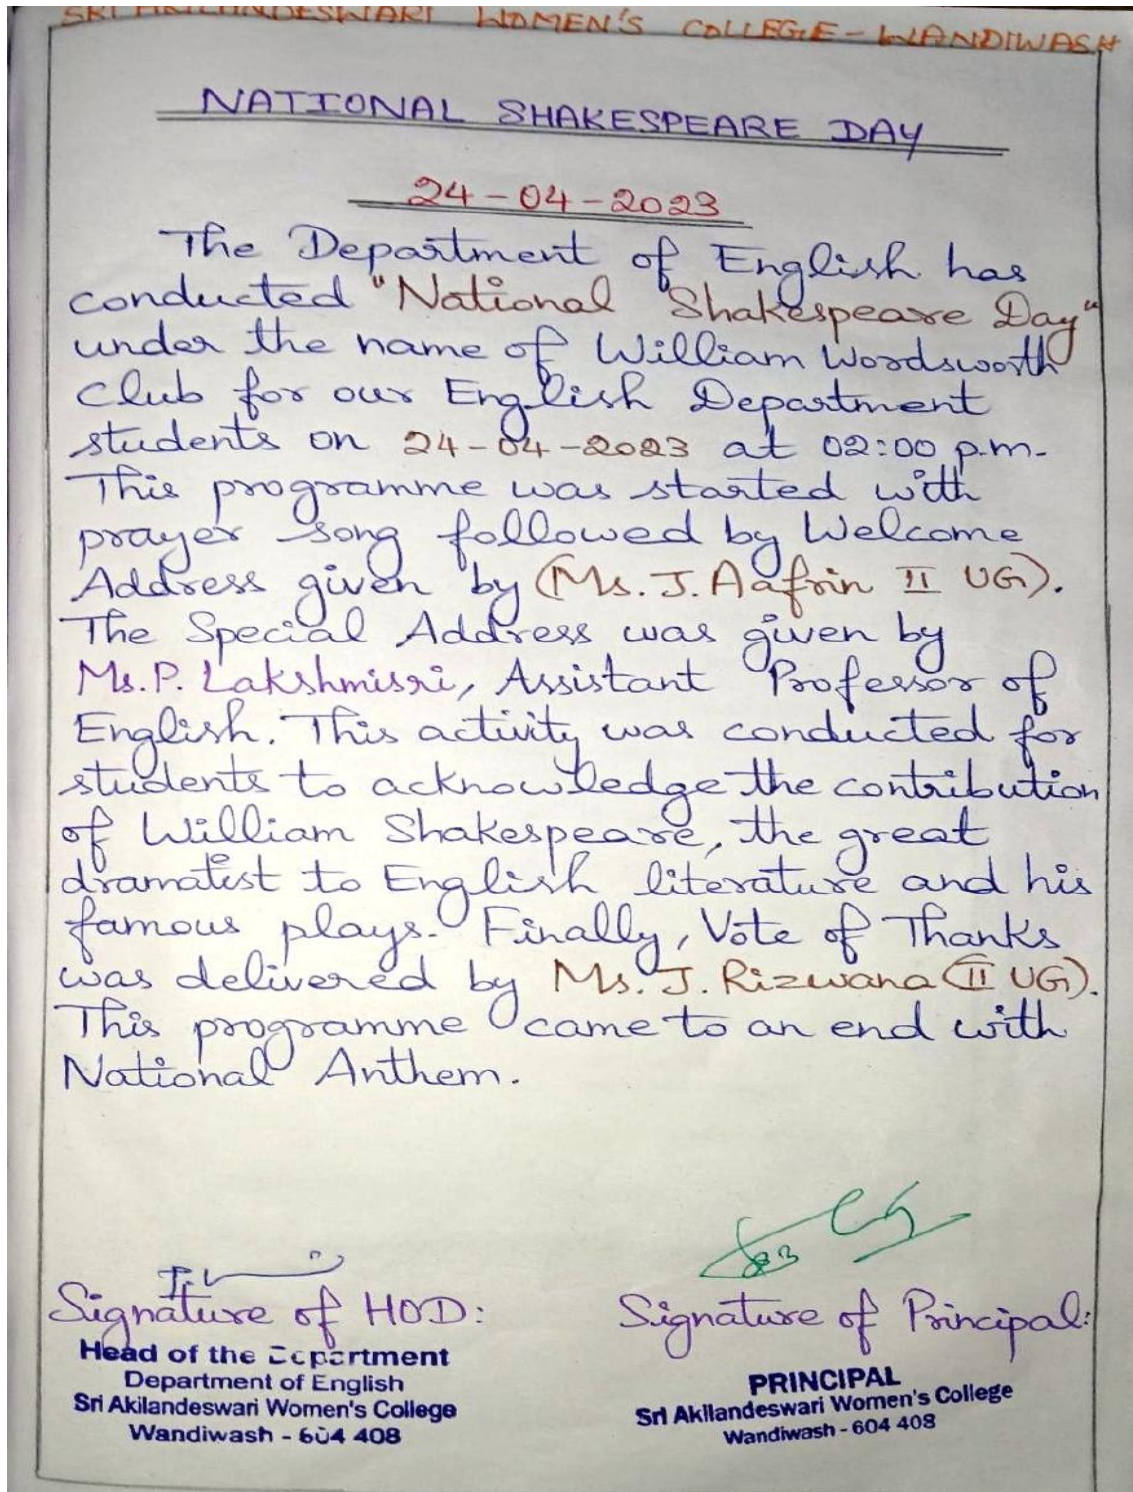 SRI AKILANDESWARI WOMEN'S COLLEGE - WANDIWASH
NATIONAL SHAKESPEARE DAY
24-04-2023
The Department of English has
conducted "National Shakespeare Day"
under the name of William Wordsworth
Club for our English Department
students on 24-04-2023 at 02:00 p.m.
This programme was started with
prayer song followed by Welcome
Address given by (Ms. J. Aafrin II UG).
The Special Address was given by
Ms. P. Lakshmisri, Assistant Professor of
English. This activity was conducted for
students to acknowledge the contribution
of William Shakespeare, the great
dramatist to English literature and his
famous plays. Finally, Vote of Thanks
was delivered by Ms. J. Rizwana (II UG).
This programme came to an end with
National Anthem.
Signature of HOD:
Head of the Department
Department of English
Sri Akilandeswari Women's College
Wandiwash - 604 408
Signature of Principal:
PRINCIPAL
Sri Akilandeswari Women's College
Wandiwash - 604 408